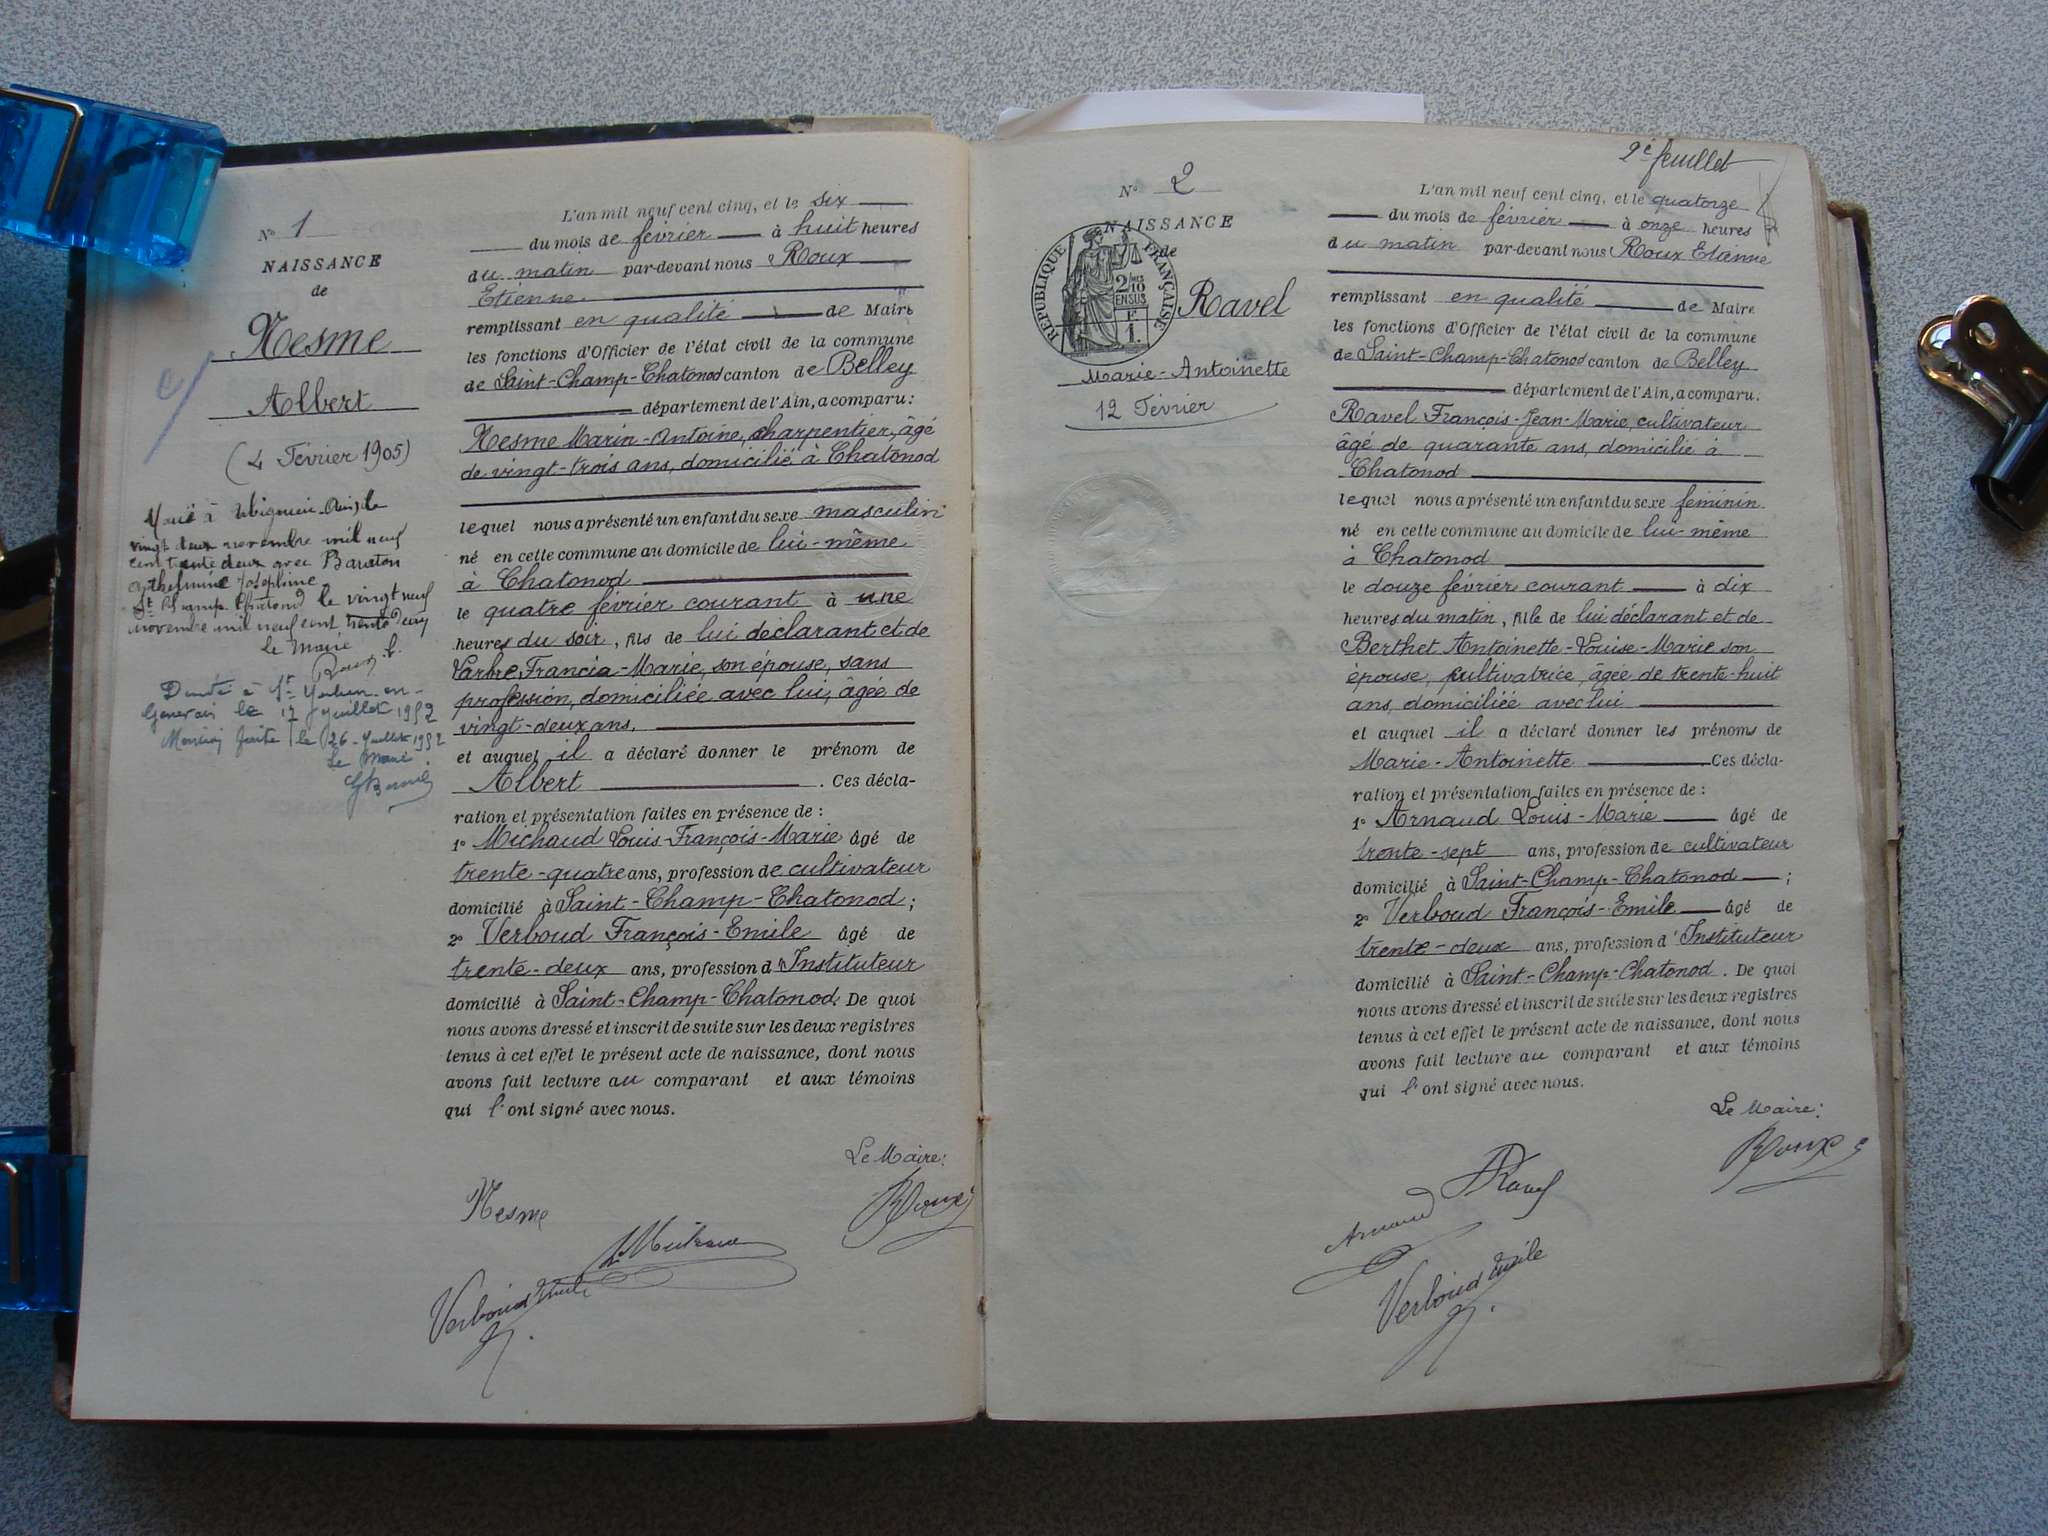 N° 1
NAISSANCE
de
Nesme
Albert
(4 Février 1905)
Marié à Virignin Ain, le
vingt deux novembre mil neuf
cent trente deux avec
Josephine
St Champ Chatonod le vingt neuf
novembre mil neuf cent trente deux
Le Maire
Roux
Décédé à St
le 17 Juillet 1952
Mention faite le 26 Juillet 1952
Le Maire
L'an mil neuf cent cinq, et le six
du mois de février à huit heures
du matin par-devant nous Roux
Etienne
remplissant en qualité de Maire
les fonctions d'Officier de l'état civil de la commune
de Saint-Champ-Chatonod canton de Belley
département de l'Ain, a comparu:
Nesme Marin-Antoine, charpentier, âgé
de vingt-trois ans, domicilié à Chatonod
lequel nous a présenté un enfant du sexe masculin
né en cette commune au domicile de lui-même
à Chatonod
le quatre février courant à une
heures du soir, fils de lui déclarant et de
Varbre Francia-Marie, son épouse, sans
profession, domiciliée avec lui, âgée de
vingt-deux ans,
et auquel il a déclaré donner le prénom de
Albert . Ces décla-
ration et présentation faites en présence de :
1° Michaud Louis-François-Marie âgé de
trente-quatre ans, profession de cultivateur
domicilié à Saint-Champ-Chatonod ;
2° Verboud François-Emile âgé de
trente-deux ans, profession d'Instituteur
domicilié à Saint-Champ-Chatonod. De quoi
nous avons dressé et inscrit de suite sur les deux registres
tenus à cet effet le présent acte de naissance, dont nous
avons fait lecture au comparant et aux témoins
qui l'ont signé avec nous.
Le Maire:
Nesme
Roux
Verboud Emile
2e feuillet
N° 2
NAISSANCE
de
RÉPUBLIQUE FRANÇAISE
2/10
EN SUS
1.
Ravel
Marie-Antoinette
12 Février
L'an mil neuf cent cinq, et le quatorze
du mois de février à onze heures
du matin par-devant nous Roux Etienne
remplissant en qualité de Maire
les fonctions d'Officier de l'état civil de la commune
de Saint-Champ-Chatonod canton de Belley
département de l'Ain, a comparu.
Ravel François-Jean-Marie, cultivateur
âgé de quarante ans, domicilié à
Chatonod
lequel nous a présenté un enfant du sexe féminin
né en cette commune au domicile de lui-même
à Chatonod
le douze février courant à dix
heures du matin, fille de lui déclarant et de
Berthet Antoinette-Louise-Marie son
épouse, cultivatrice, âgée de trente-huit
ans, domiciliée avec lui
et auquel il a déclaré donner les prénoms de
Marie-Antoinette . Ces décla-
ration et présentation faites en présence de :
1° Arnaud Louis-Marie âgé de
trente-sept ans, profession de cultivateur
domicilié à Saint-Champ-Chatonod ;
2° Verboud François-Emile âgé de
trente-deux ans, profession d'Instituteur
domicilié à Saint-Champ-Chatonod. De quoi
nous avons dressé et inscrit de suite sur les deux registres
tenus à cet effet le présent acte de naissance, dont nous
avons fait lecture au comparant et aux témoins
qui l'ont signé avec nous.
Le Maire:
Roux
Ravel
Arnaud
Verboud Emile